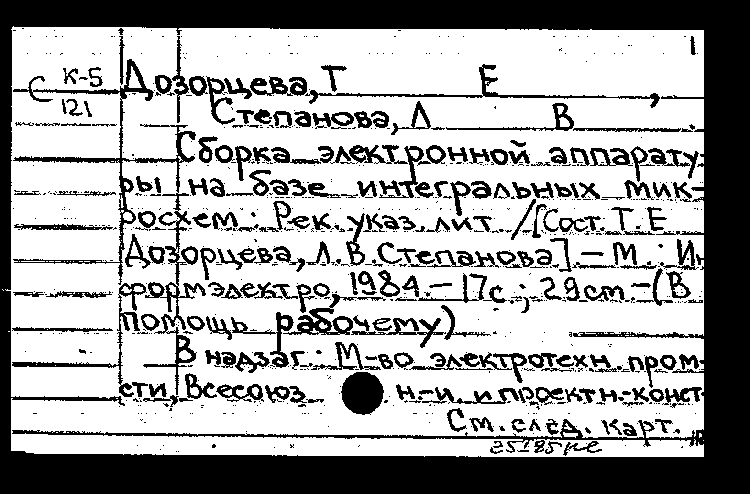 1
С К-5
121
Дозорцева, Т Е ,
Степанова, Л В .
Сборка электронной аппарату-
ры на базе интегральных мик-
росхем : Рек. указ. лит /[Сост. Т. Е
Дозорцева, Л. В. Степанова] – М. : Ин
формэлектро, 1984. – 17с ; 29см – (В
помощь рабочему)
В надзаг : М-во электротехн пром-
сти, Всесоюз н.-и. и проектн.-конст
См. след. карт.